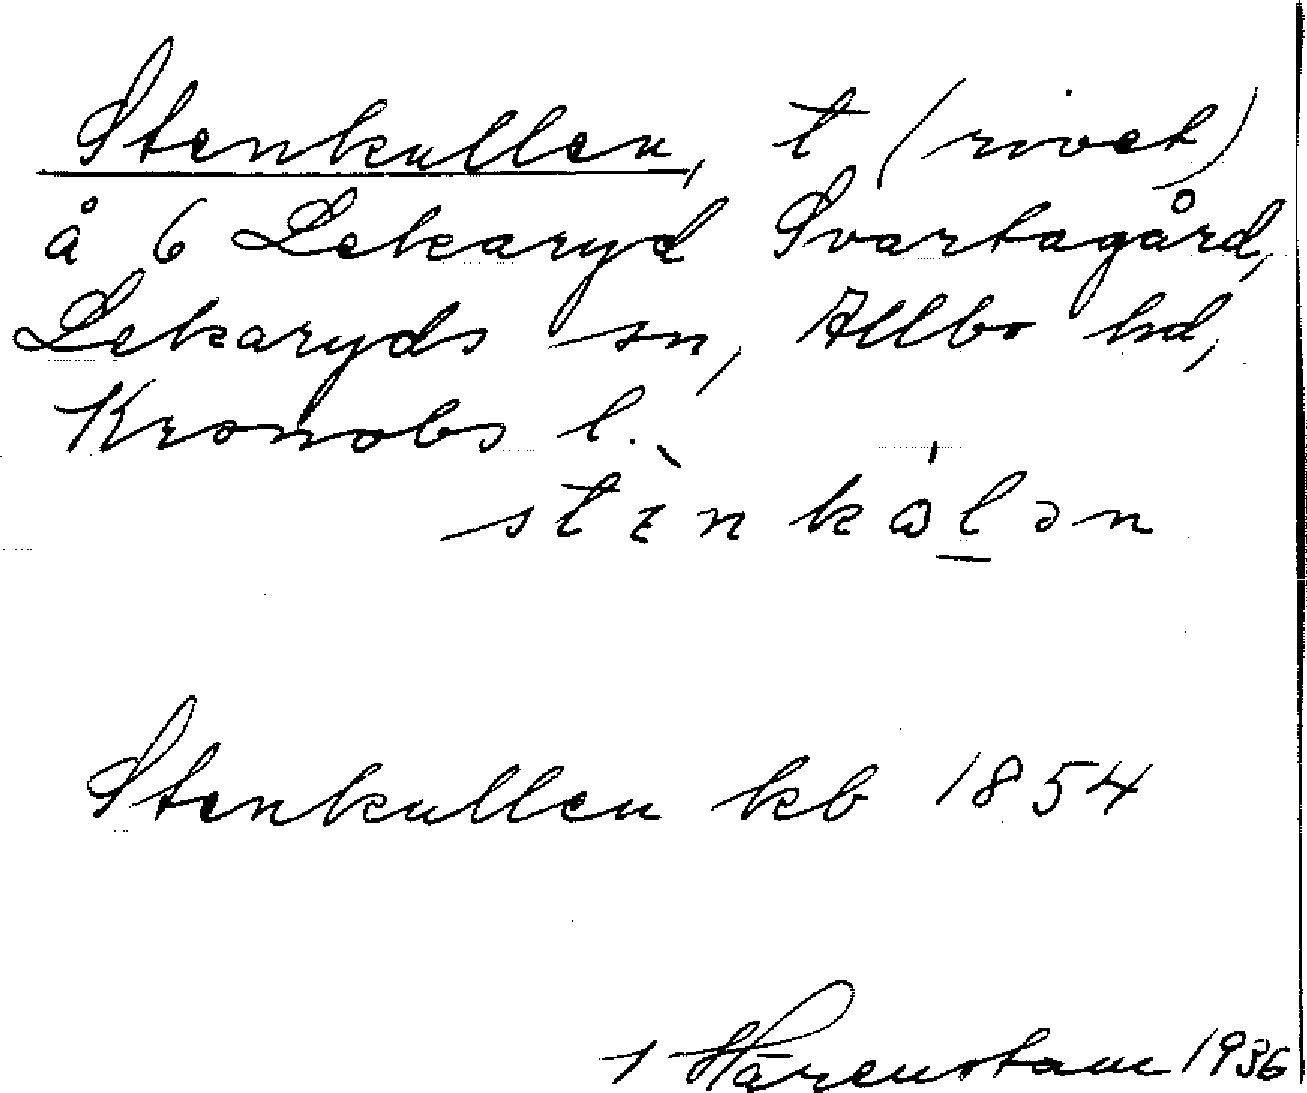 Stenkullen, t (rivet)
å 6 Lekaryd Svartagård,
Lekaryds sn, Allbo hd,
Kronobs l.
stɛ̀nkɷ́l̲ən
Stenkullen kb 1854
Härenstam 1936